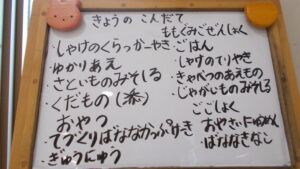 きょうの こんだて
・しゃけのくらっかーやき
・ゆかりあえ
・さといものみそしる
・くだもの(柿)
おやつ
てづくりばななかっぷけーき
・ぎゅうにゅう
ももぐみごぜんしょく
・ごはん
・しゃけのてりやき
・きゃべつのあえもの
・じゃがいものみそしる
ごごしょく
・おやさいにゅうめん
・ばななきなこ